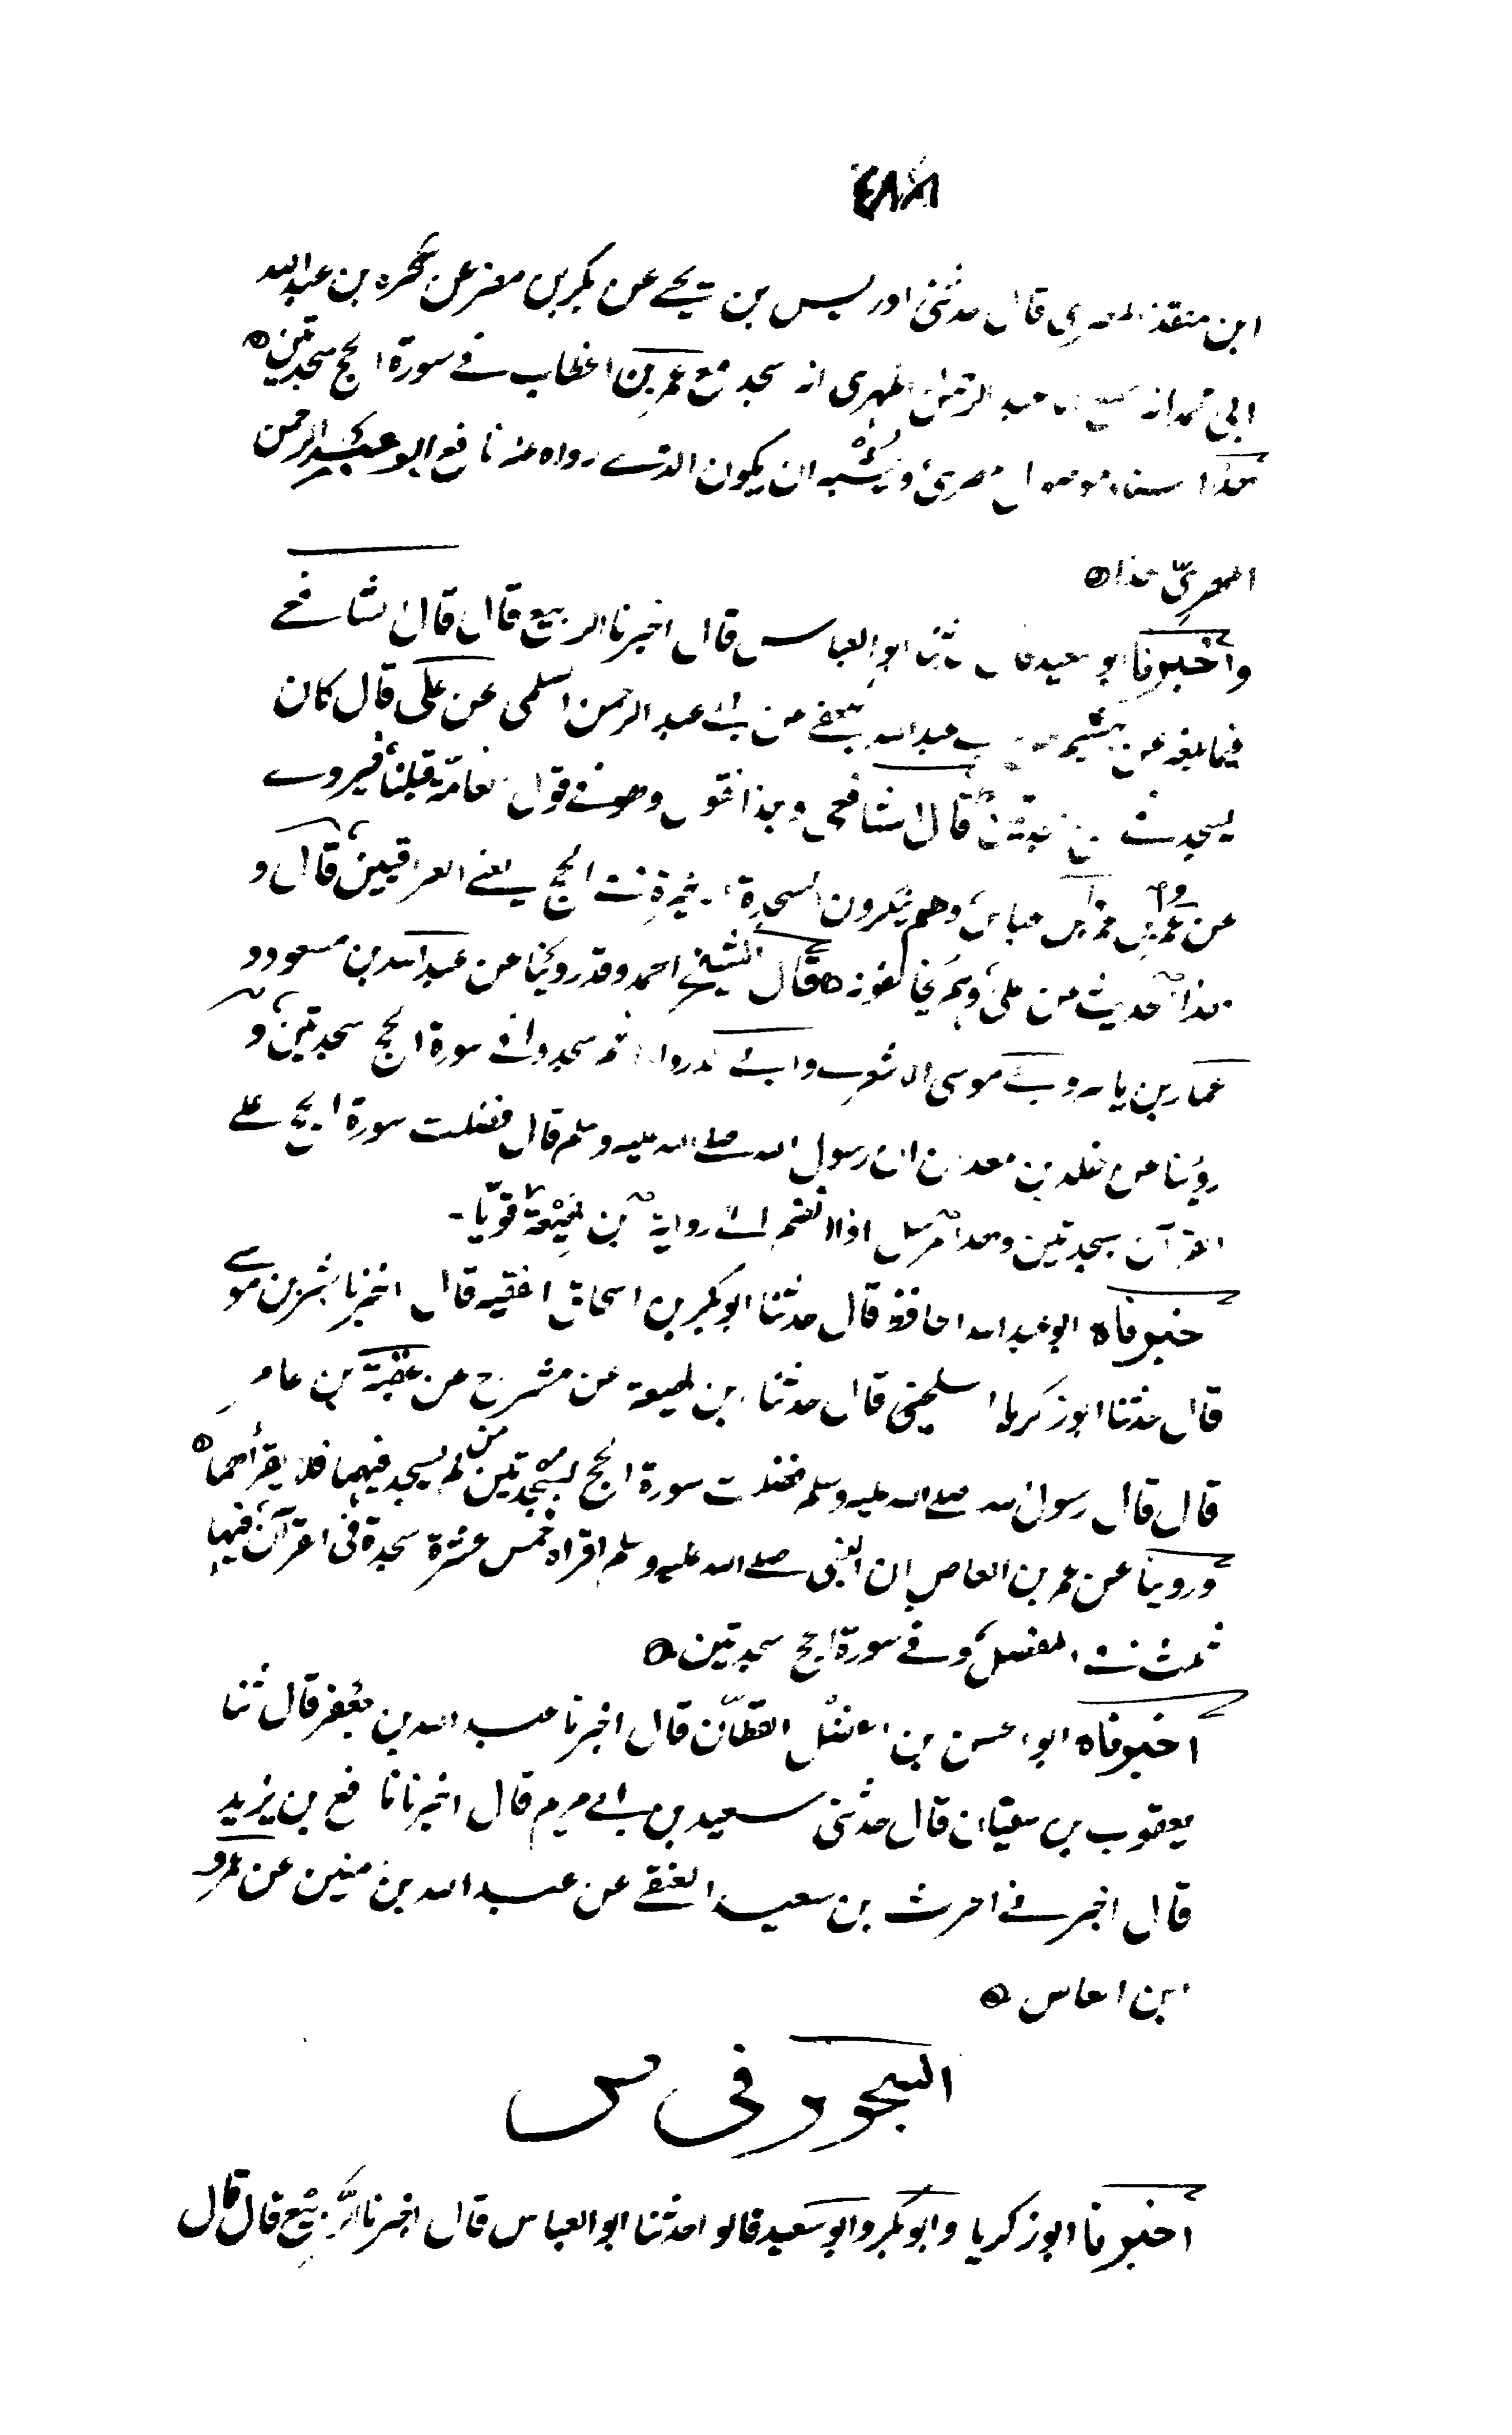 ابن منقذ المصرى قال حدثنى ادريس بن يحيى عن بكر بن مضر عن صخره بن عبد الله
ابى محمد انه سمع ابا عبد الرحمن المهرى انه سجد مع عمر بن الخطاب فى سورة الحج سجدتين
هذا اسناد موصول مصرى ويشبه ان يكون الذى رواه عنه نافع ابو عبد الرحمن
المهرى هذا
واخبرنا ابو سعيد قال ثنا ابو العباس قال اخبرنا الربيع قال قال الشافعى
فيما بلغه عن هشيم عن ابى عبد الله الجعفى عن ابى عبد الرحمن السلمى عن على قال كان
يسجد فى الحج سجدتين قال الشافعى وبهذا نقول وهو فى قول العامة قبلنا فيروى
عن عمر وابن عمر وابن عباس وهم ينكرون السجدة الاخيرة فى الحج يعنى العراقيين قال و
هذا الحديث عن على وهم يخالفونه قال الشيخ احمد وقد روينا عن عبد الله بن مسعود و
عمار بن ياسر وابى موسى الاشعرى وابى الدرداء انهم سجدوا فى سورة الحج سجدتين و
روينا عن خلد بن معدان ان رسول الله صلى الله عليه وسلم قال فضلت سورة الحج على
القرآن بسجدتين وهذا المرسل اذا انضم الى رواية ابن لهيعة قويا
اخبرناه ابو عبد الله الحافظ قال حدثنا ابو بكر بن اسحاق الفقيه قال اخبرنا بشر بن موسى
قال حدثنا ابو زكريا السيلحينى قال حدثنا ابن لهيعة عن مشرح عن عقبة بن عامر
قال قال رسول الله صلى الله عليه وسلم فضلت سورة الحج بسجدتين من لم يسجد فيهما فلا يقرأهما
وروينا عن عمر بن العاص ان النبى صلى الله عليه وسلم اقراه خمس عشرة سجدة فى القرآن فيها
ثلث فى المفصل وفى سورة الحج سجدتين
اخبرناه ابو الحسن بن الفضل القطان قال اخبرنا عبد الله بن جعفر قال ثنا
يعقوب بن سفيان قال حدثنى سعيد بن ابى مريم قال اخبرنا نافع بن يزيد
قال اخبرنى الحرث بن سعيد العتقى عن عبد الله بن منين عن عمرو
ابن العاص
السجود فى ص
اخبرنا ابو زكريا وابو بكر وابو سعيد قالوا حدثنا ابو العباس قال اخبرنا الربيع قال قال